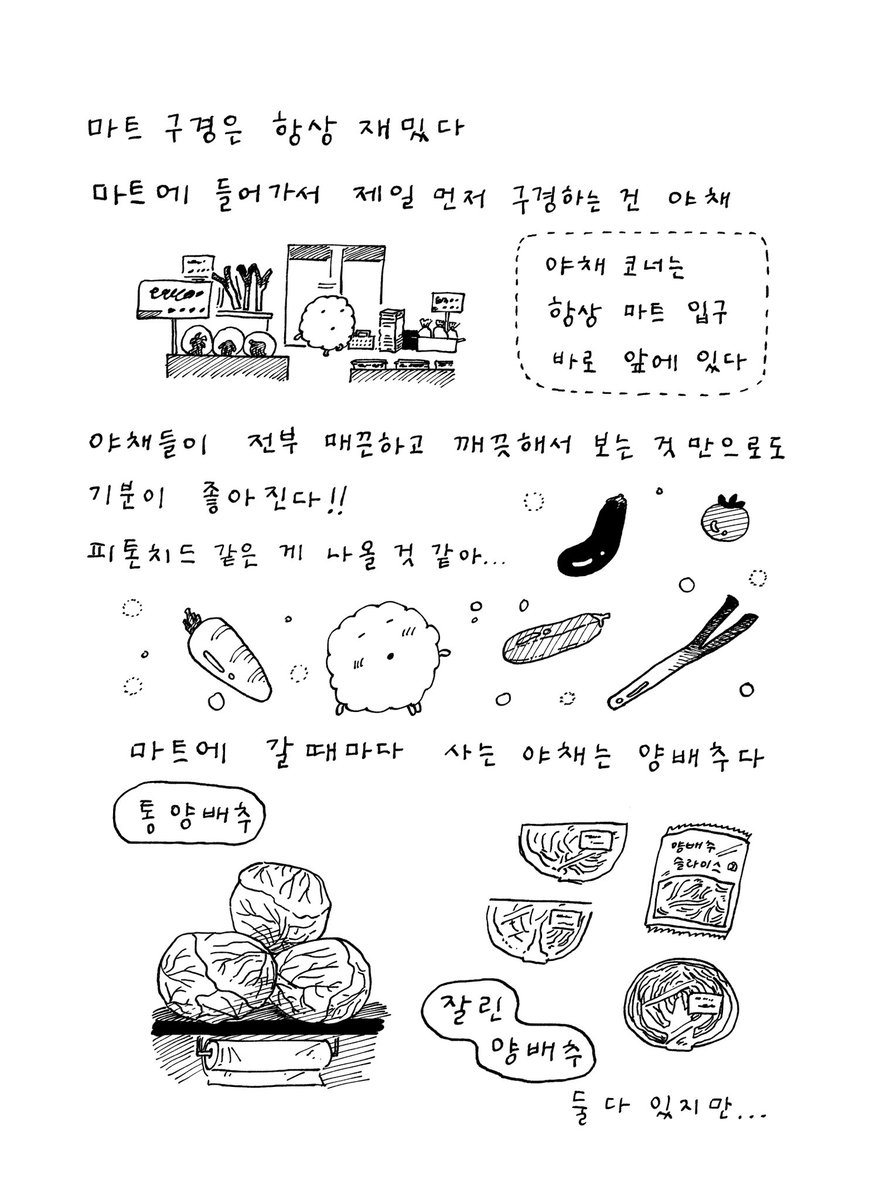 마트 구경은 항상 재밌다
마트에 들어가서 제일 먼저 구경하는 건 야채
야채 코너는
항상 마트 입구
바로 앞에 있다
야채들이 전부 매끈하고 깨끗해서 보는 것만으로도
기분이 좋아진다!!
피톤치드 같은 게 나올 것 같아...
마트에 갈 때마다 사는 야채는 양배추다
통 양배추
양배추
슬라이스
잘린
양배추
둘 다 있지만...